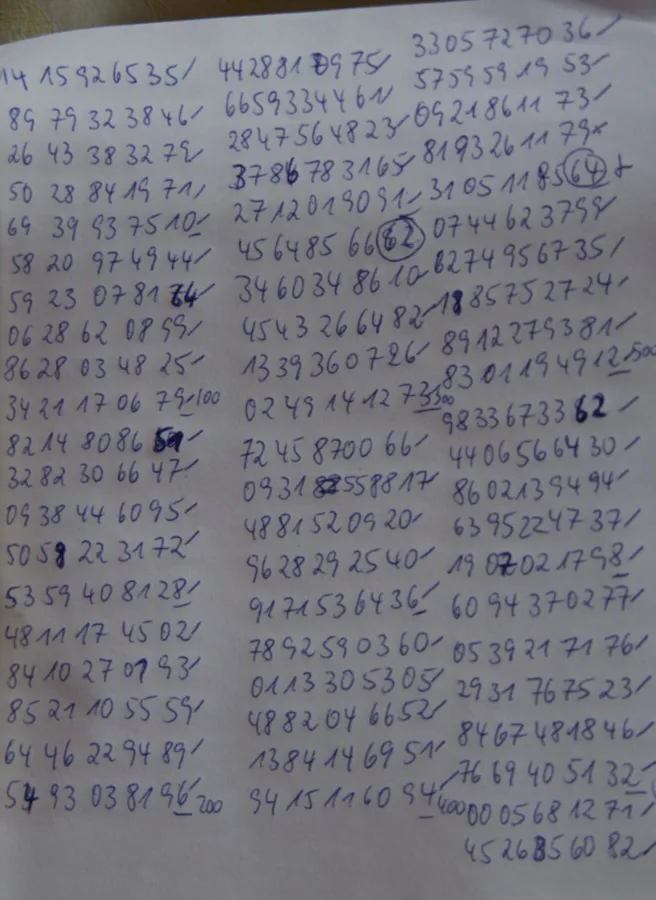 14 15 92 65 35/
89 79 32 38 46/
26 43 38 32 79/
50 28 84 19 71/
69 39 93 75 10/
58 20 97 49 44/
59 23 07 81 64
06 28 62 08 99/
86 28 03 48 25/
34 21 17 06 79/100
82 14 80 86 51/
32 82 30 66 47/
09 38 44 60 95/
50 58 22 31 72/
53 59 40 81 28/
48 11 17 45 02/
84 10 27 01 93/
85 21 10 55 59/
64 46 22 94 89/
54 93 03 81 96/200
44 28 81 09 75/
66 59 33 44 61/
28 47 56 48 23/
37 86 78 31 65/
27 12 01 90 91/
45 64 85 66 62
34 60 34 86 10/
45 43 26 64 82/
13 39 36 07 26/
02 49 14 12 73/300
72 45 87 00 66/
09 31 55 88 17/
48 81 52 09 20/
96 28 29 25 40/
91 71 53 64 36/
78 92 59 03 60/
01 13 30 53 05/
48 82 04 66 52/
13 84 14 69 51/
94 15 11 60 94/400
33 05 72 70 36/
57 59 59 19 53/
09 21 86 11 73/
81 93 26 11 79
31 05 11 85 64
07 44 62 37 99/
62 74 95 67 35/
18 85 75 27 24/
89 12 27 93 81/
83 01 19 49 12/500
98 33 67 33 62/
44 06 56 64 30/
86 02 13 94 94/
63 95 22 47 37/
19 07 02 17 98/
60 94 37 02 77/
05 39 21 71 76/
29 31 76 75 23/
84 67 48 18 46/
76 69 40 51 32/
00 05 68 12 71/
45 26 35 60 82/